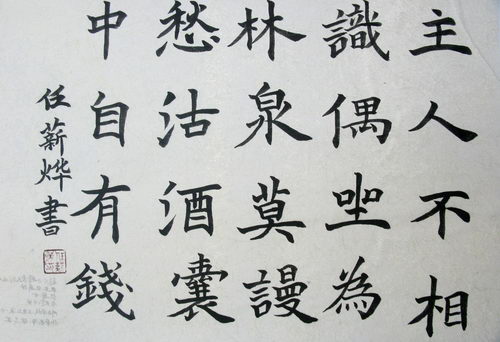 主人不相
識偶坐為
林泉莫謾
愁沽酒囊
中自有錢
任薪烨書